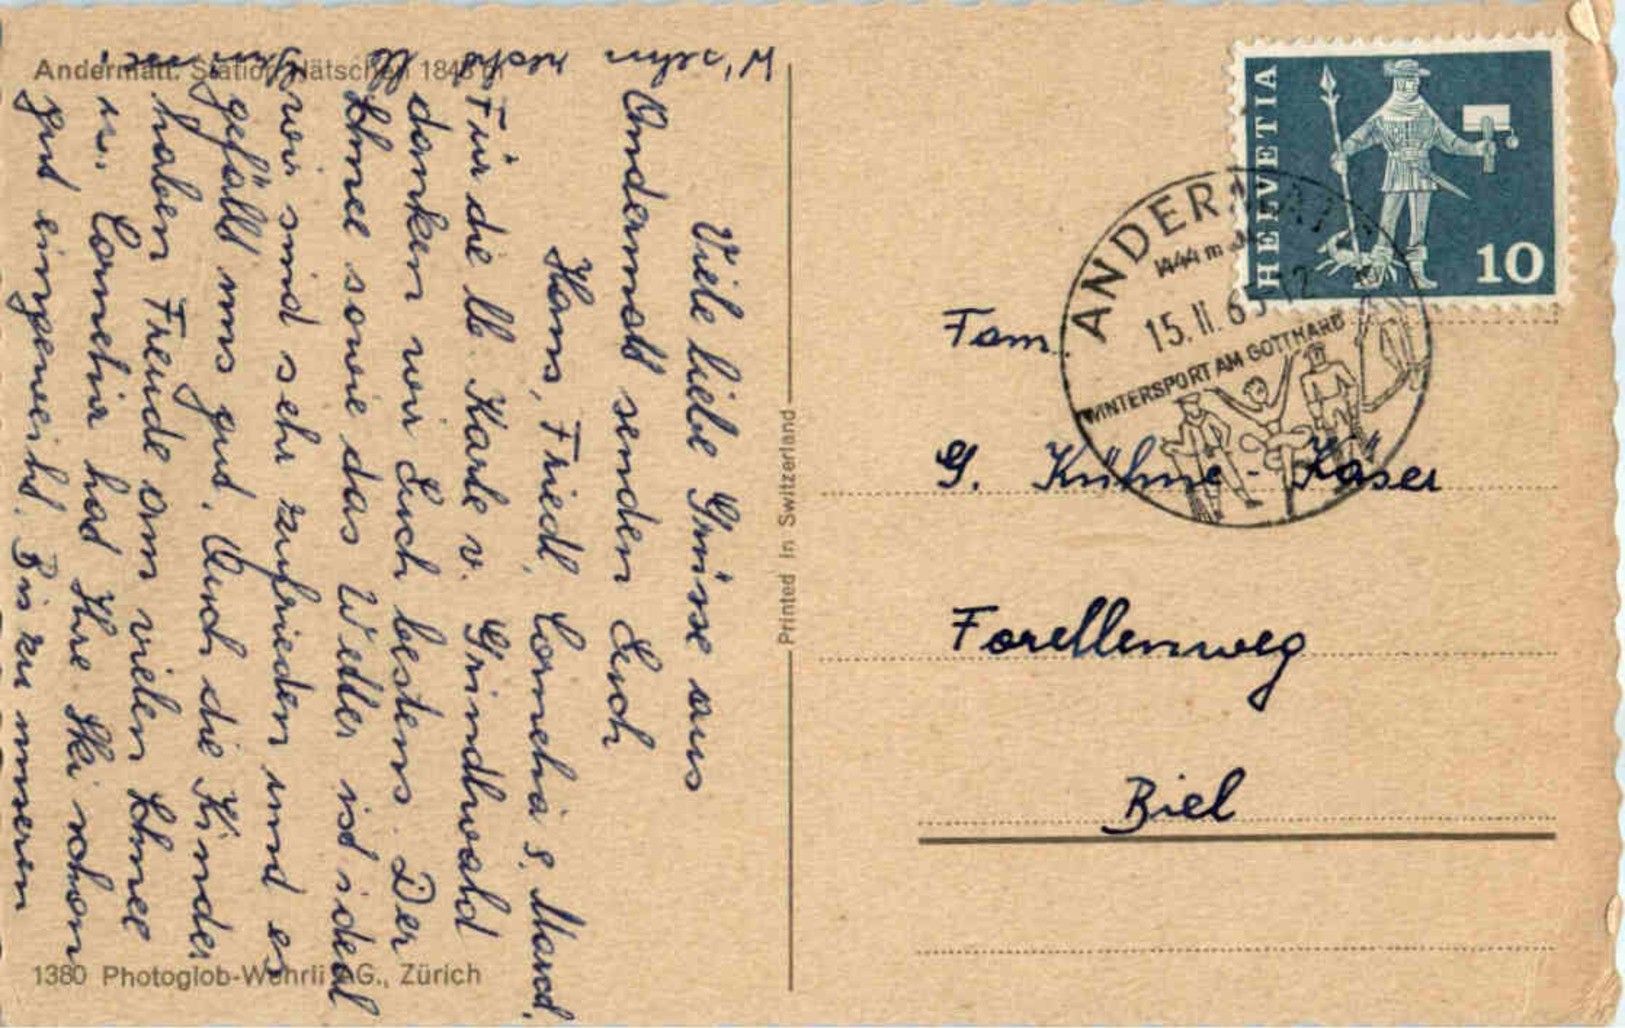 Andermatt. Station Nätschen 1843 m
Viele liebe Grüsse aus
Andermatt senden Euch
Hans, Friedl, Cornelia &
Für die lb. Karte v. Grindlwald
danken wir Euch bestens. Der
Schnee sowie das Wetter ist ideal
wir sind sehr zufrieden und es
gefällt uns gut. Auch die Kinder
haben Freude am vielen Schnee
u. Cornelia hat Ihre Ski schon
gut eingeweiht. Bis zu unserem
W'sehn
1380 Photoglob-Wehrli AG., Zürich
Printed in Switzerland
HELVETIA
10
ANDERMATT
1444 m
15.II.6
WINTERSPORT AM GOTTHARD
Fam.
G. Kühne - Käser
Forellenweg
Biel